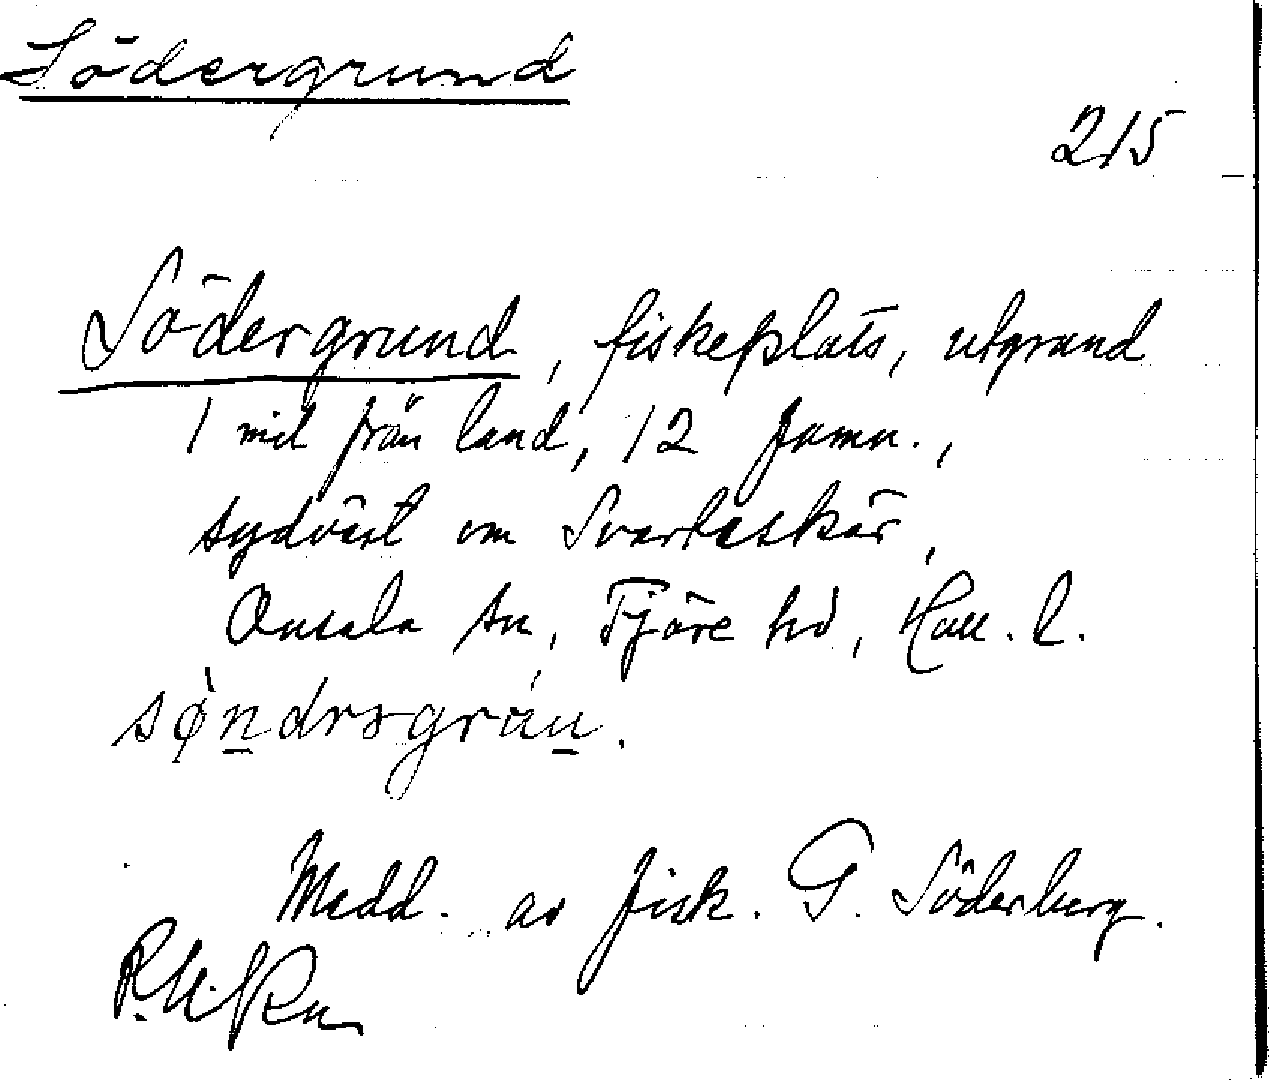 Södergrund
215
Södergrund, fiskeplats, utgrund
1 mil från land, 12 famn.,
sydväst om Svartaskär,
Onsala sn, Fjäre hd, Hall. l.
Medd. av fisk. G. Söderberg.